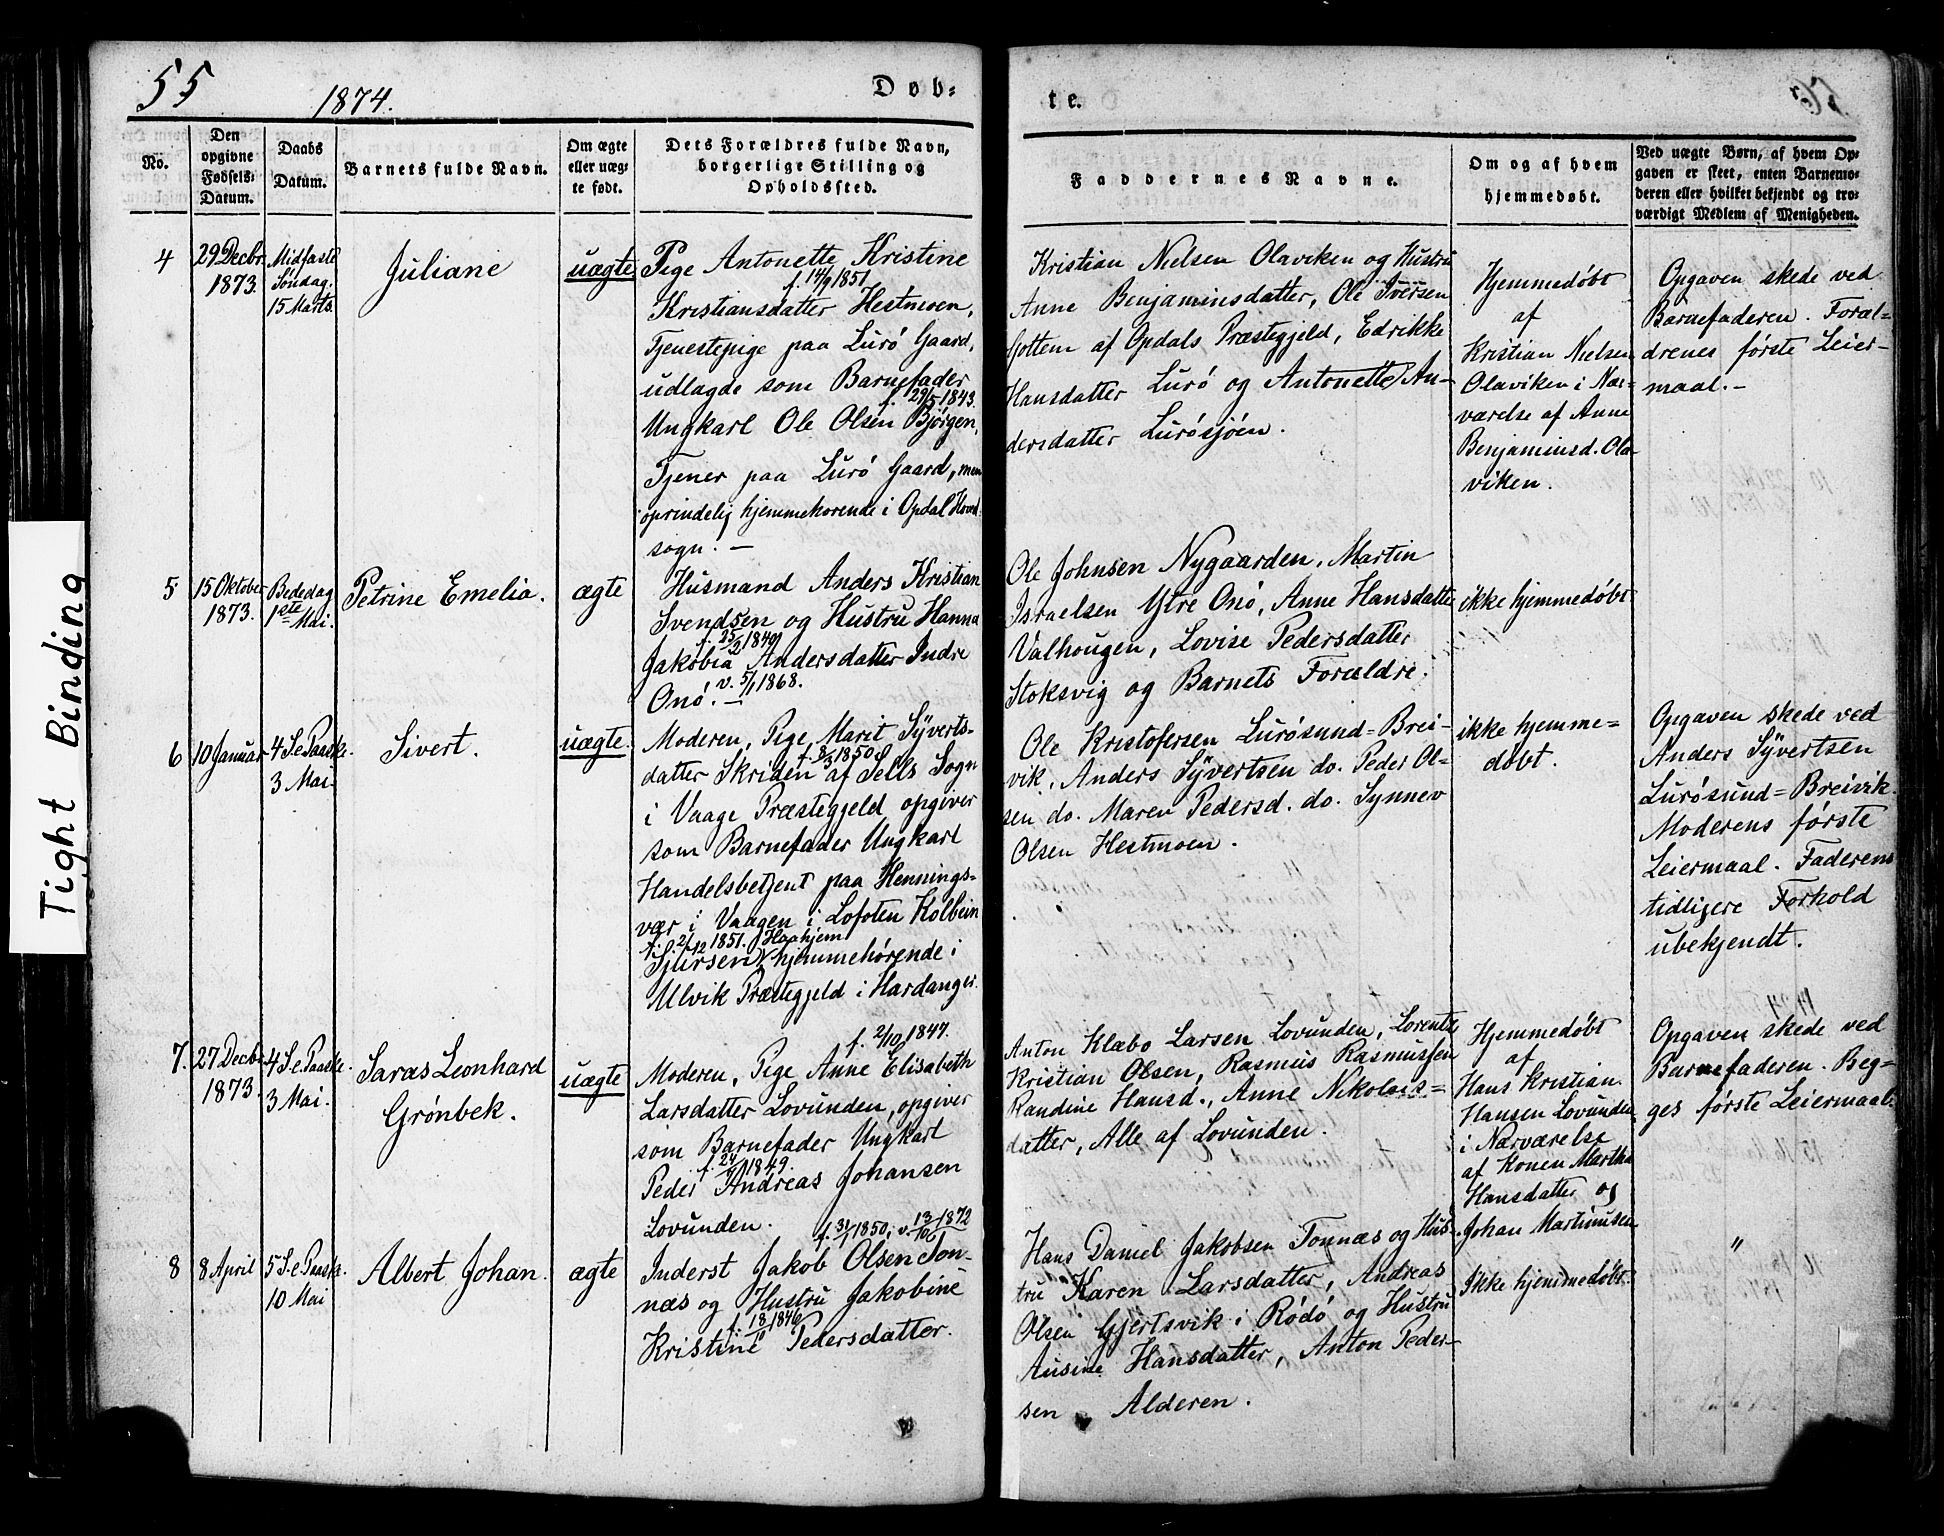 Tight Binding
55
1874.
Døb-
te.
No.
Den
opgivne
Fødsels-
Datum.
Daabs
Datum.
Barnets fulde Navn.
Om ægte
eller uæg-
te født.
Dets Forældres fulde Navn,
borgerlige Stilling og
Opholdssted.
Faddernes Navne.
Om og af hvem
hjemmedøbt.
Ved uægte Børn, af hvem Op-
gaven er skeet, enten Barnemo-
deren eller hvilket bekjendt og tro-
værdigt Medlem af Menigheden.
4
29 Decbr.
1873.
Midfaste
Søndag.
15 Marts.
Juliane
uægte
Pige Antonette Kristine
f. 14/9 1851
Kristiansdatter Hestmoen,
Tjenestepige paa Lurö Gaard,
udlagde som Barnefader
f. 29/5 1843.
Ungkarl Ole Olsen Bjørgen,
Tjener paa Lurö Gaard, men
oprindelig hjemmehörende i Opdal Hoved-
sogn. —
Kristian Nielsen Olaviken og Hustru
Anne Benjaminsdatter, Ole Iversen
Gottem af Opdals Præstegjeld, Edrikke
Hansdatter Lurö og Antonette An-
dersdatter Lurösjöen.
Hjemmedöbt
af
Kristian Nielsen
Olaviken i Nær-
værelse af Anne
Benjaminsd. Ola-
viken.
Opgaven skede ved
Barnefaderen. Foræl-
drenes förste Leier-
maal. -
5
15 Oktober
1873.
Bededag
1ste Mai.
Petrine Emelia.
ægte
Husmand Anders Kristian
Svendsen og Hustru Hanna
f. 25/2 1849
Jakobia Andersdatter Indre
Onö. v. 5/1 1868.
Ole Johnsen Nygaarden, Martin
Israelsen Ytre Onö, Anne Hansdatter
Valhougen, Lovise Pedersdatter
Stoksvig og Barnets Forældre.
ikke hjemmedöbt
6
10 Januar
4 S. e. Paaske.
3 Mai.
Sivert.
uægte.
Moderen, Pige Marit Syverts-
f. 8/3 1850
datter Skriden af Sells Sogn
i Vaage Præstegjeld opgiver
som Barnefader Ungkarl
Handelsbetjent paa Hennings-
vær i Vaagen i Lofoten Kolbein
f. 2/12 1851. Haahjem
Sjursen, hjemmehörende i
Ulvik Præstegjeld i Hardanger.
Ole Kristofersen Lurösund-Brei-
vik, Anders Syvertsen do. Peder Ol-
sen do. Maren Pedersd. do. Synnev
Olsen Hestmoen.
ikke hjemme-
döbt.
Opgaven skede ved
Anders Syvertsen
Lurösund-Breivik.
Moderens förste
Leiermaal. Faderens
tidligere Forhold
ubekjendt.
7.
27 Decbr.
1873.
4 S. e. Paaske.
3 Mai.
Saras Leonhard
Grönbek.
uægte
f. 2/10 1847.
Moderen, Pige Anne Elisabeth
Larsdatter Lovunden, opgiver
som Barnefader Ungkarl
Peder Andreas Johansen
Lovunden.
Anton Klæbo Larsen Lovunden, Lorentz
Kristian Olsen, Rasmus Rasmussen
Randine Hansd., Anne Nikolais-
datter, Alle af Lovunden.
Hjemmedöbt
af
Hans Kristian
Hansen Lovunden
i Nærværelse
af Konen Martha
Hansdatter og
Johan Martinusen
Opgaven skede ved
Barnefaderen. Beg-
ges förste Leiermaal.
8
8 April
5 S. e. Paaske.
10 Mai
Albert Johan.
ægte
f. 31/1 1850, v. 13/10 1872
Inderst Jakob Olsen Ton-
næs og Hustru Jakobine
f. 18/10 1846
Kristine Pedersdatter.
Hans Daniel Jakobsen Tonnæs og Hus-
tru Karen Larsdatter, Andreas
Olsen Gjertsvik i Rödö og Hustru
Ausine Hansdatter, Anton Peder-
sen Alderen.
Ikke hjemmedöbt.
"